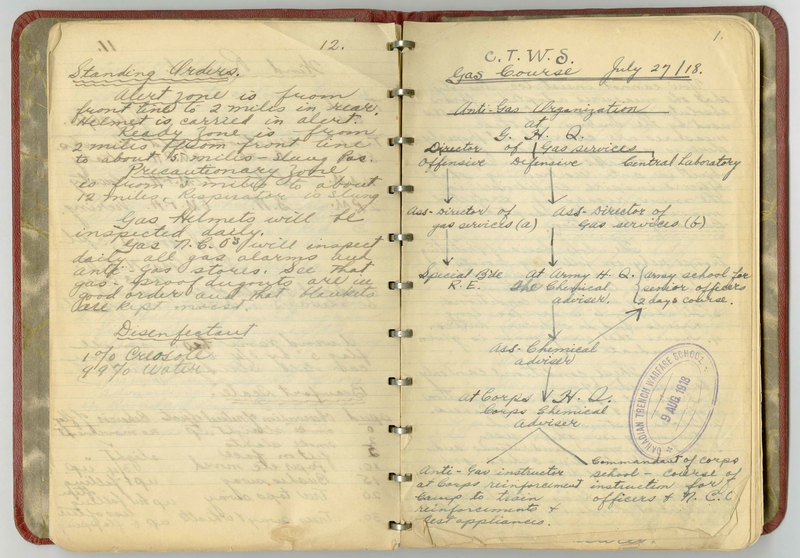 11.
12.
Standing Orders.
Alert zone is from
front line to 2 miles in rear.
Helmet is carried in alert.
Ready Zone is from
2 miles from front line
to about 5 miles - slung pos.
Precautionary Zone
is from 5 miles to about
12 miles. Respirator is slung
Gas Helmets will be
inspected daily.
Gas N.C.Os will inspect
daily all gas alarms and
anti-gas stores. See that
gas-proof dugouts are in
good order and that blankets
are kept moist.
Disenfectant
1% Creosote
99% Water
1.
C.T.W.S.
Gas Course July 27/18.
Anti-Gas Organization
at
G. H. Q.
Director of Gas services
Offensive Difensive Central Laboratory
Ass-Director of Ass-Director of
gas services (a) Gas services (b)
Special Bde At Army H. Q. army school for
R. E. Chemical senior officers
adviser. 2 days course.
Ass-Chemical
adviser
At Corps H. Q.
Corps Chemical
adviser
CANADIAN TRENCH WARFARE SCHOOL
9 AUG 1918
Anti-Gas instructor Commandant of corps
at Corps reinforcement school - course of
Camp to train instruction for
reinforcements & officers & N. C. O
test appliances.